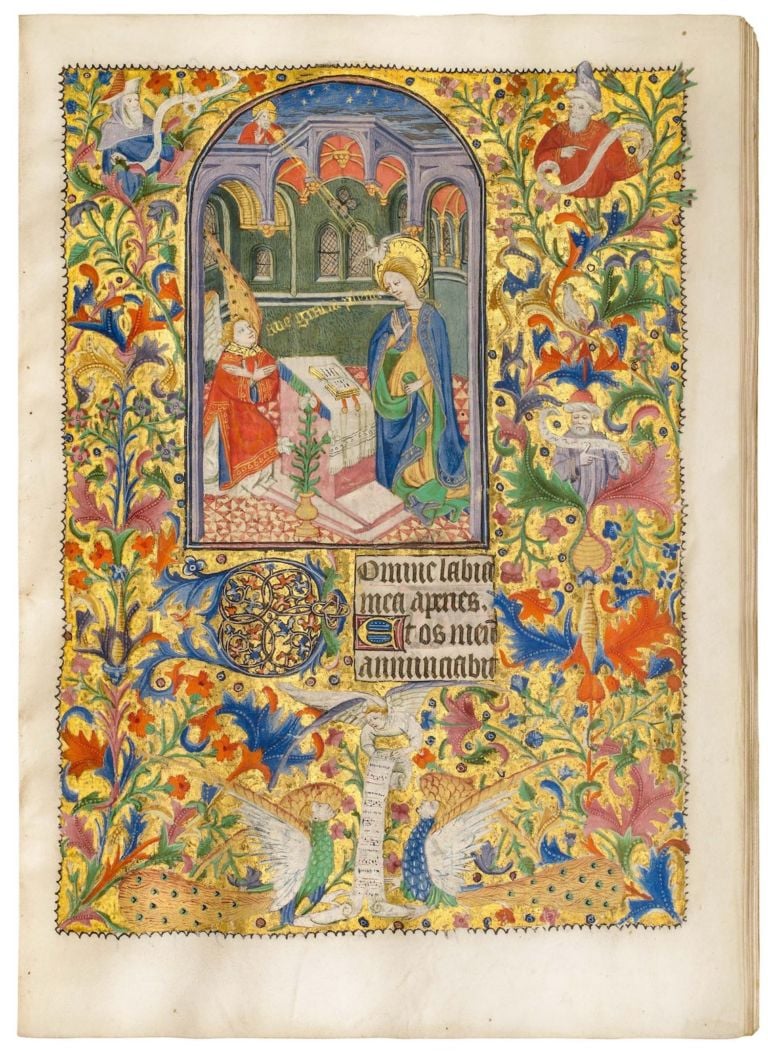 aue gratia plena
Domine labia
mea aperies.
Et os meū
annunciabit